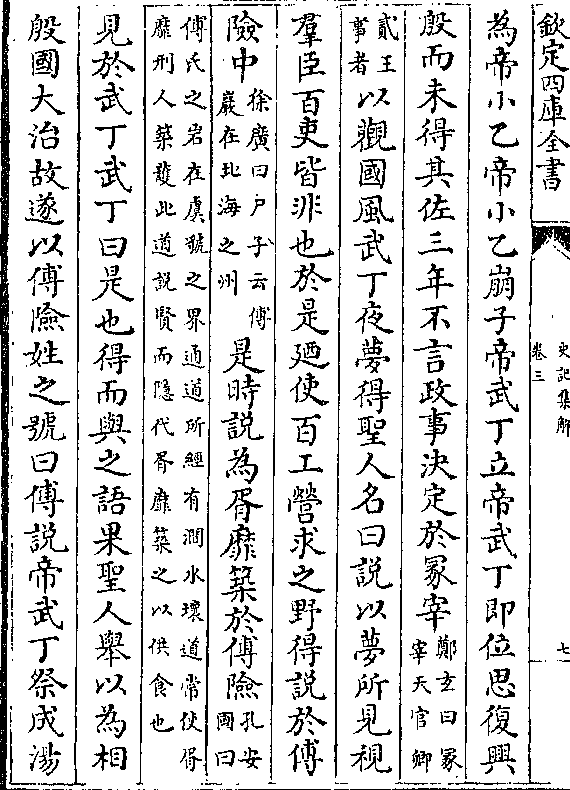 欽定四庫全書
史記集解
卷三
七
為帝小乙帝小乙崩子帝武丁立帝武丁即位思復興
殷而未得其佐三年不言政事決定於冢宰鄭玄曰冢
宰天官卿
貳王
事者以觀國風武丁夜夢得聖人名曰説以夢所見視
羣臣百吏皆非也於是廼使百工營求之野得説於傅
險中徐廣曰尸子云傅
巖在北海之州是時説為胥靡築於傅險孔安
國曰
傅氏之岩在虞虢之界通道所經有澗水壊道常使胥
靡刑人築䕶此道説賢而隠代胥靡築之以供食也
見於武丁武丁曰是也得而與之語果聖人舉以為相
殷國大治故遂以傅險姓之號曰傅説帝武丁祭成湯